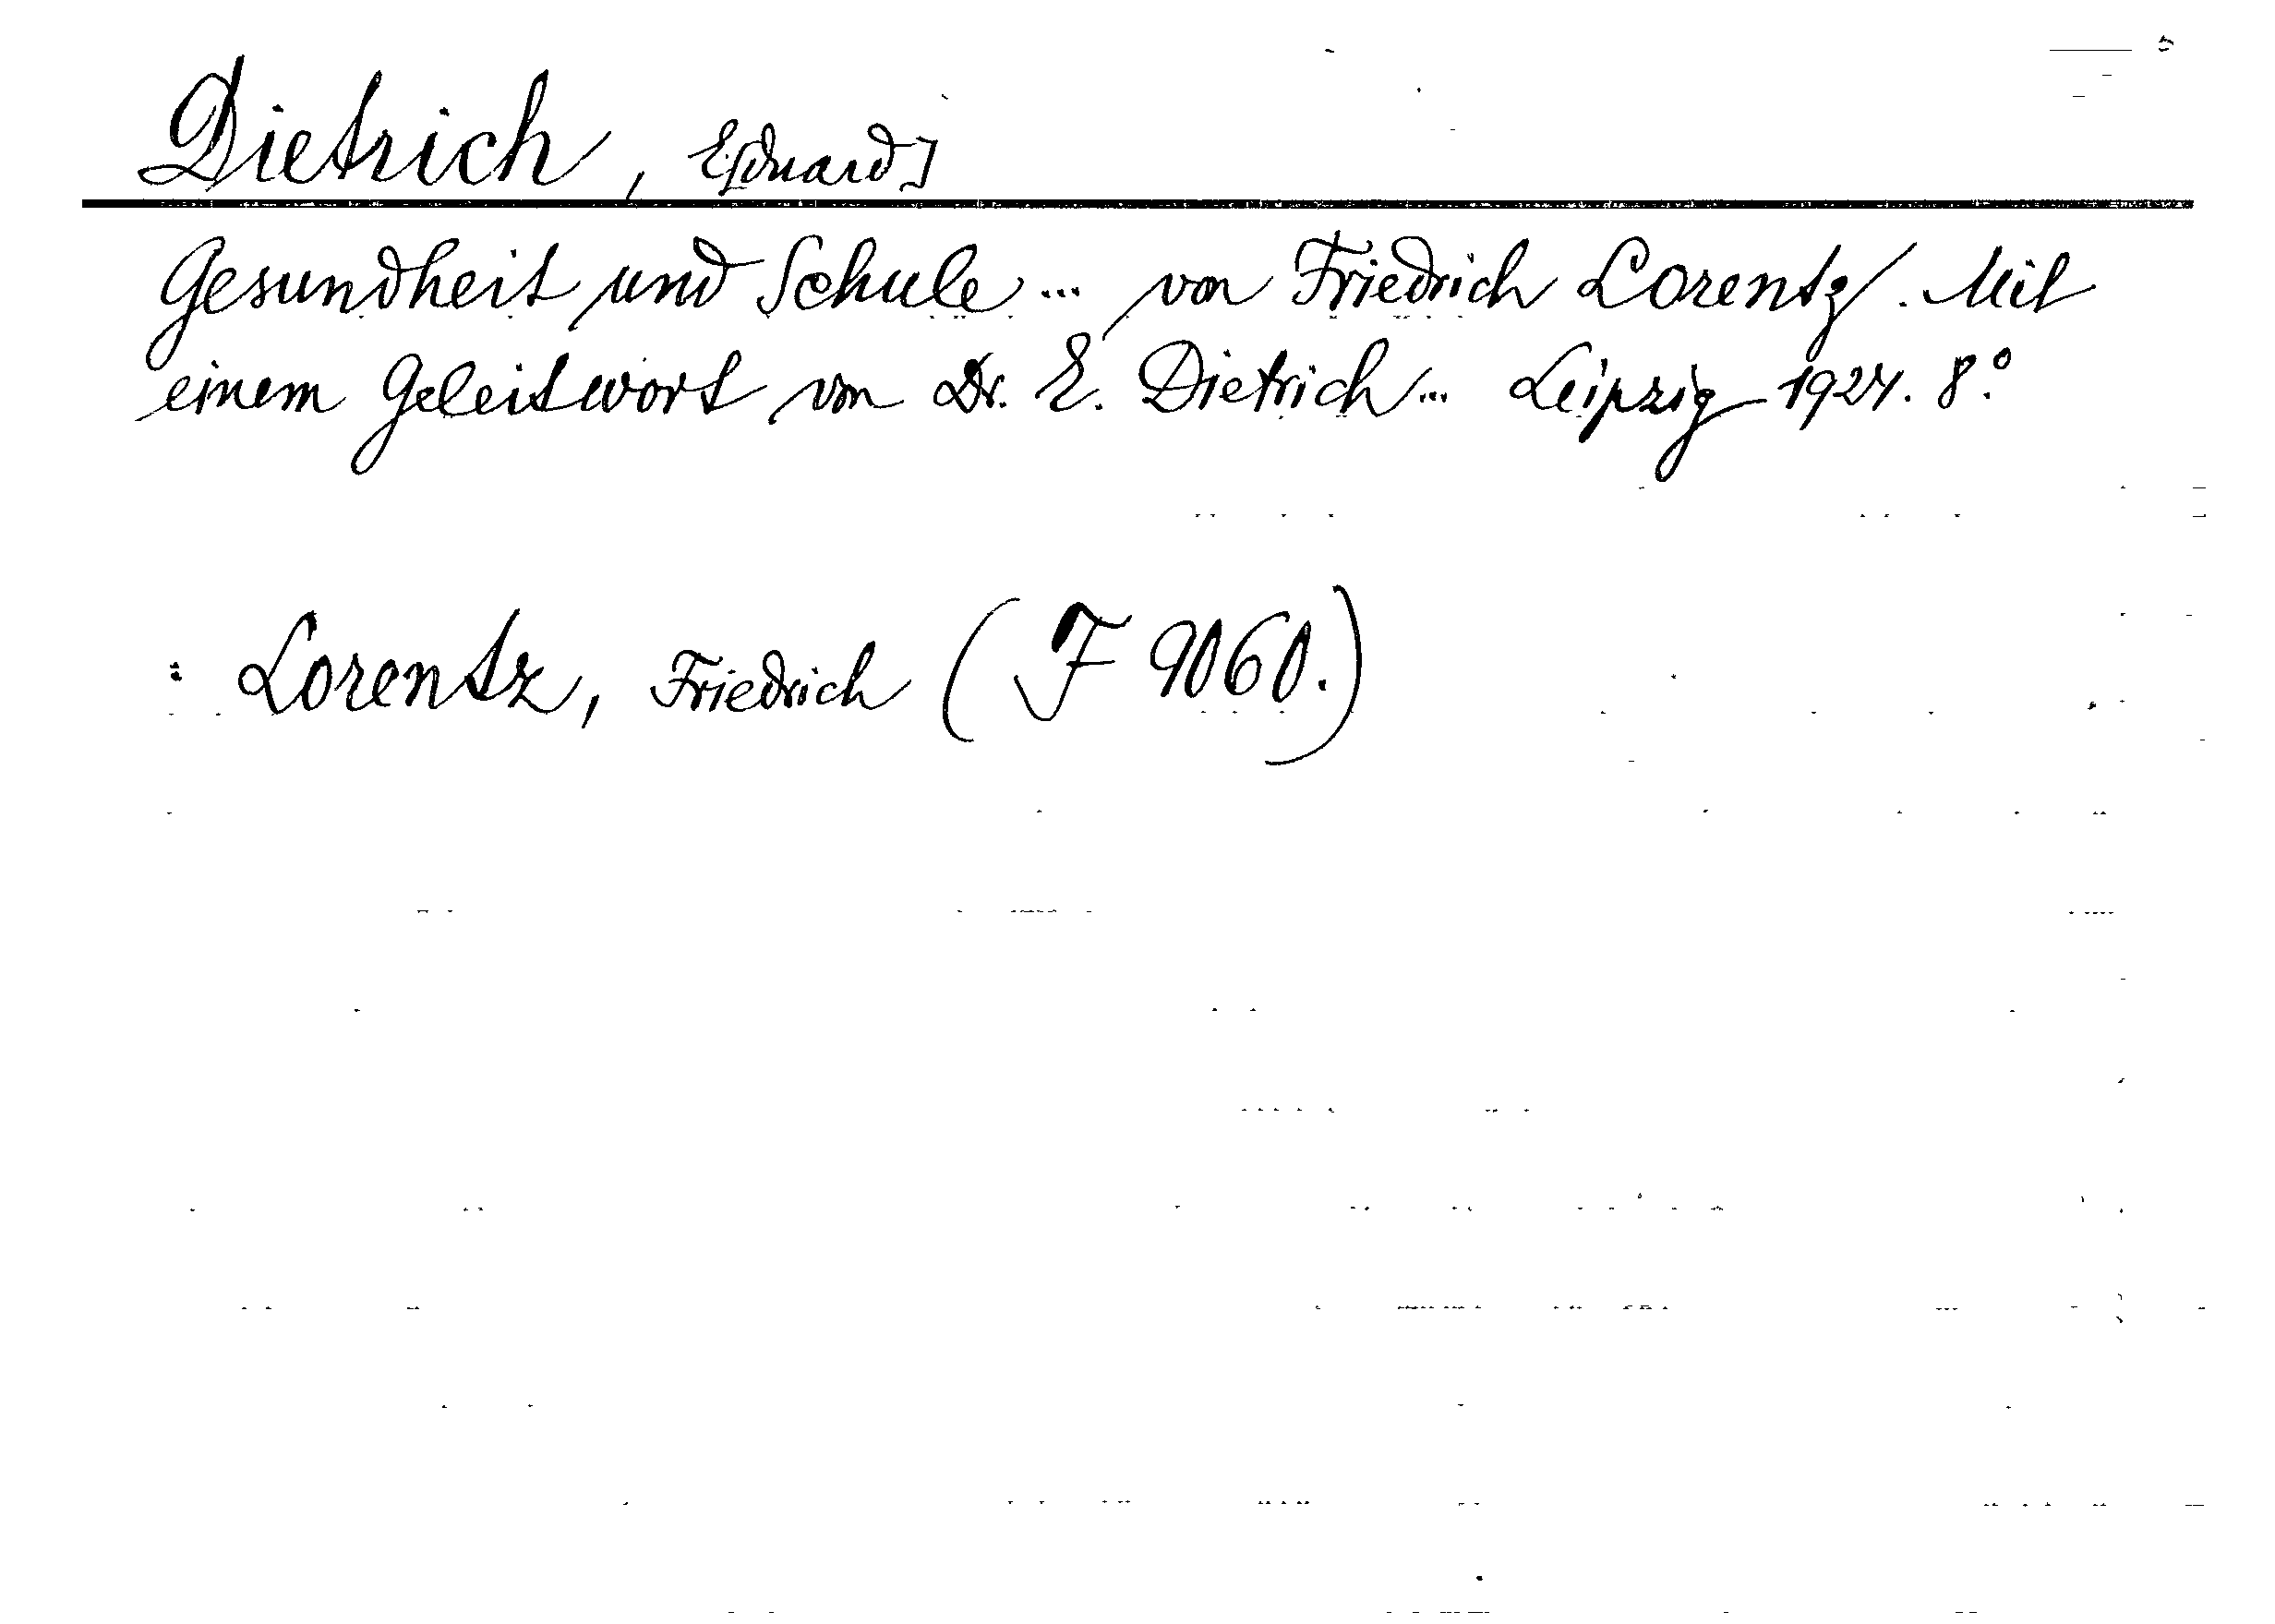 Dietrich, E[duard]
Gesundheit und Schule ... von Friedrich Lorentz. Mit
einem Geleitwort von Dr. E. Dietrich ... Leipzig 1924. 8°.
: Lorentz, Friedrich (F 9060.)